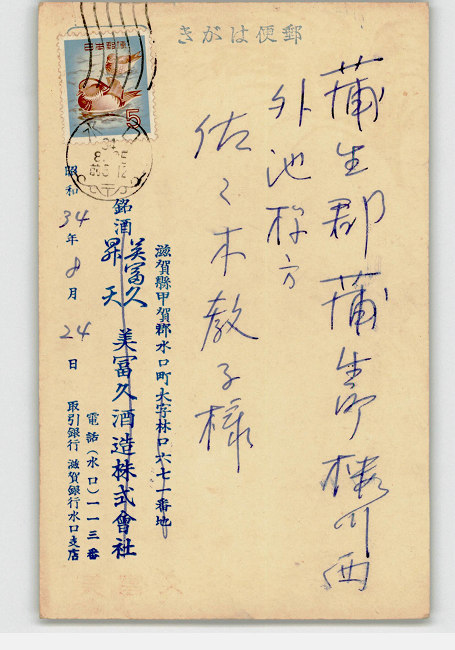 郵便はがき
日本郵便
5
蒲生郡蒲生町桜川西
外池様方
佐々木教子様
滋賀縣甲賀郡水口町大字林口六七一番地
銘酒 美冨久
昇天
美冨久酒造株式會社
電話(水口)一一三番
取引銀行 滋賀銀行水口支店
昭和34年8月24日